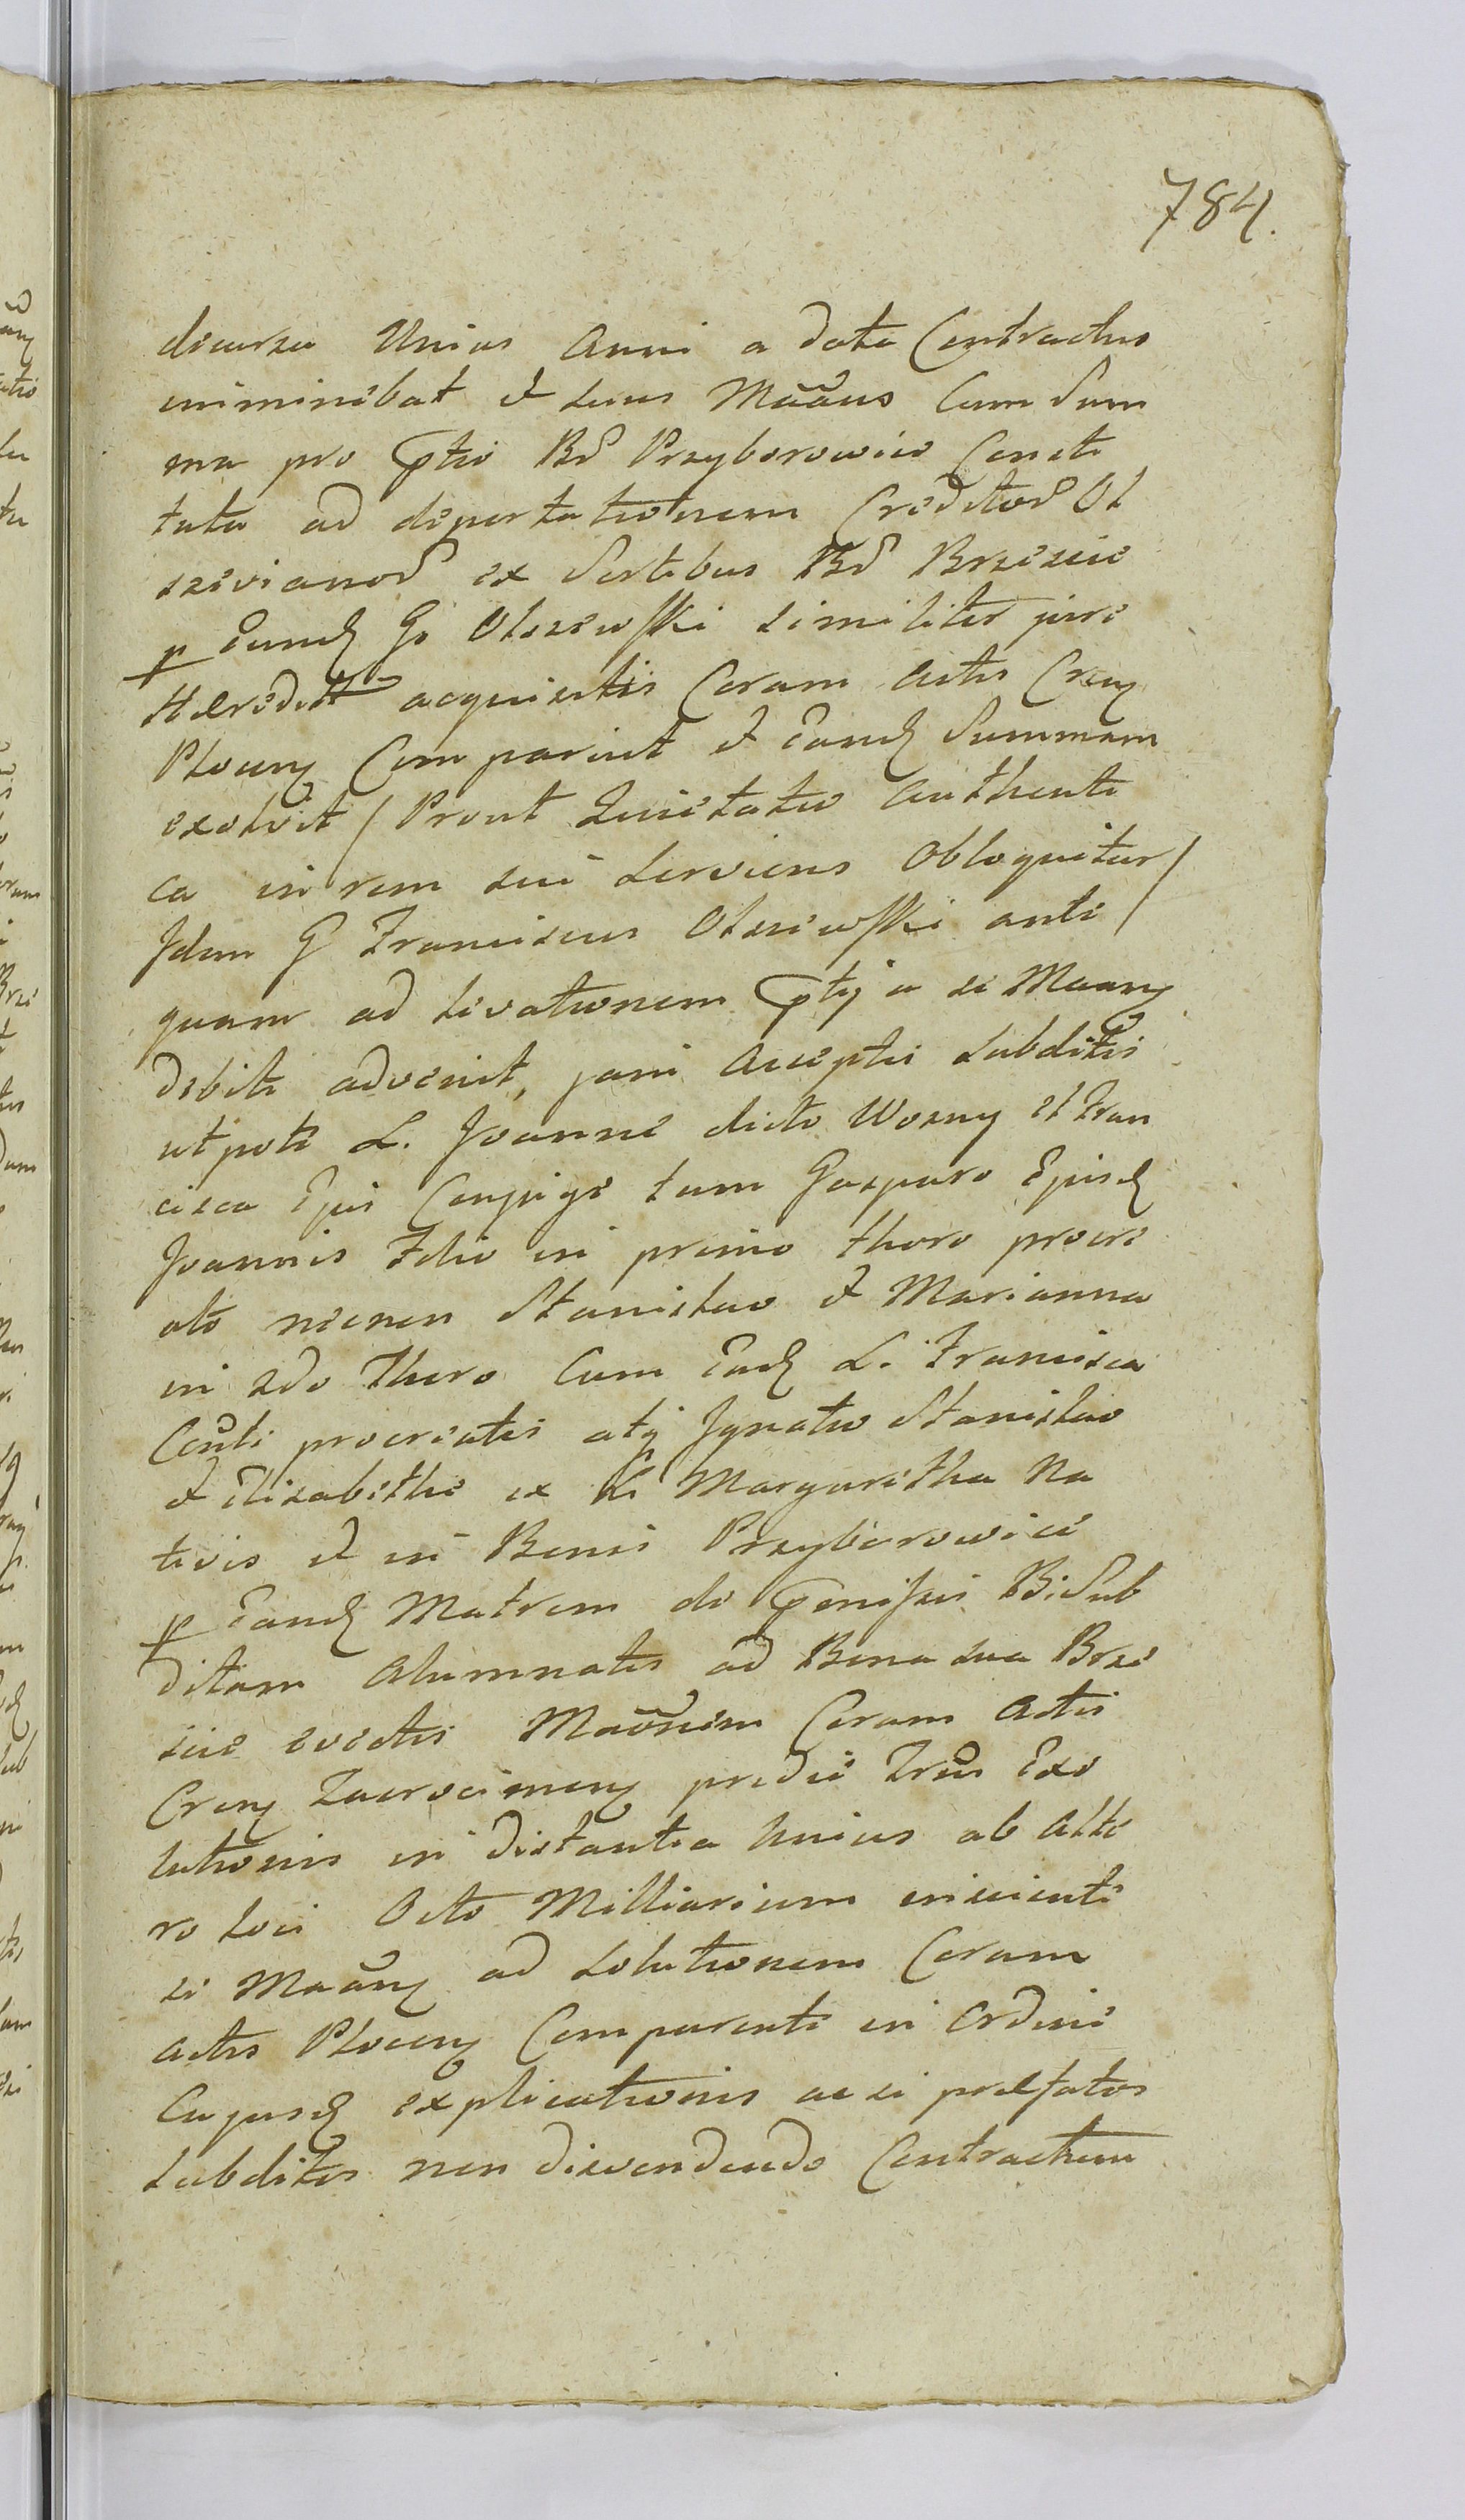 784.
decursu Unius Anni a data Contractus
imminebat et suus Mãnus Cum Sum
ma pro ptio Bř Przyborowice Consti
tuta ad deportationem Creditoř Ol
szevianoř ex Sortibus Bř Brzezcie
p Eund Go Olszewski similiter jure
Heredit acquisitis Coram Actis Creny
Ploceny Comparuit et Eand Summam
exolvit / Prout Quietatio authenti
ca in rem sui serviens obloquitur /
Idem G Franciscus Olszewski ante /
quam ad levationem ptij a se Maany
debiti advenit, jam acceptis subditis
utpote L. Joanne dicto Wozny et Fran
cisca Ejus Conjuge tum Gasparo Ejusd
Joannis Filio in primo thoro procre
ato necnon Stanislao et Marianna
in 2do Thoro Cum Ead L. Francisca
Conti procreatis atq Ignatio Stanislao
et Elisabethe ex L Margaretha Na
tivis et in Bonis Przyborowice
p Eand Matrem de genisi Bi Sub
ditam Alumnatis ad Bona sua Brze
scie evectis Maonem Coram Actis
Creny Zacrocimeny predie Trm Exo
lutionis in distantia Unius ab Alte
ro loci Octo Milliarium inscienti
se Maany ad solutionem Coram
Actis Ploceny Comparenti in Ordine
Cujusd explicationis ac si præfatos
subditos non divendendo Contractum